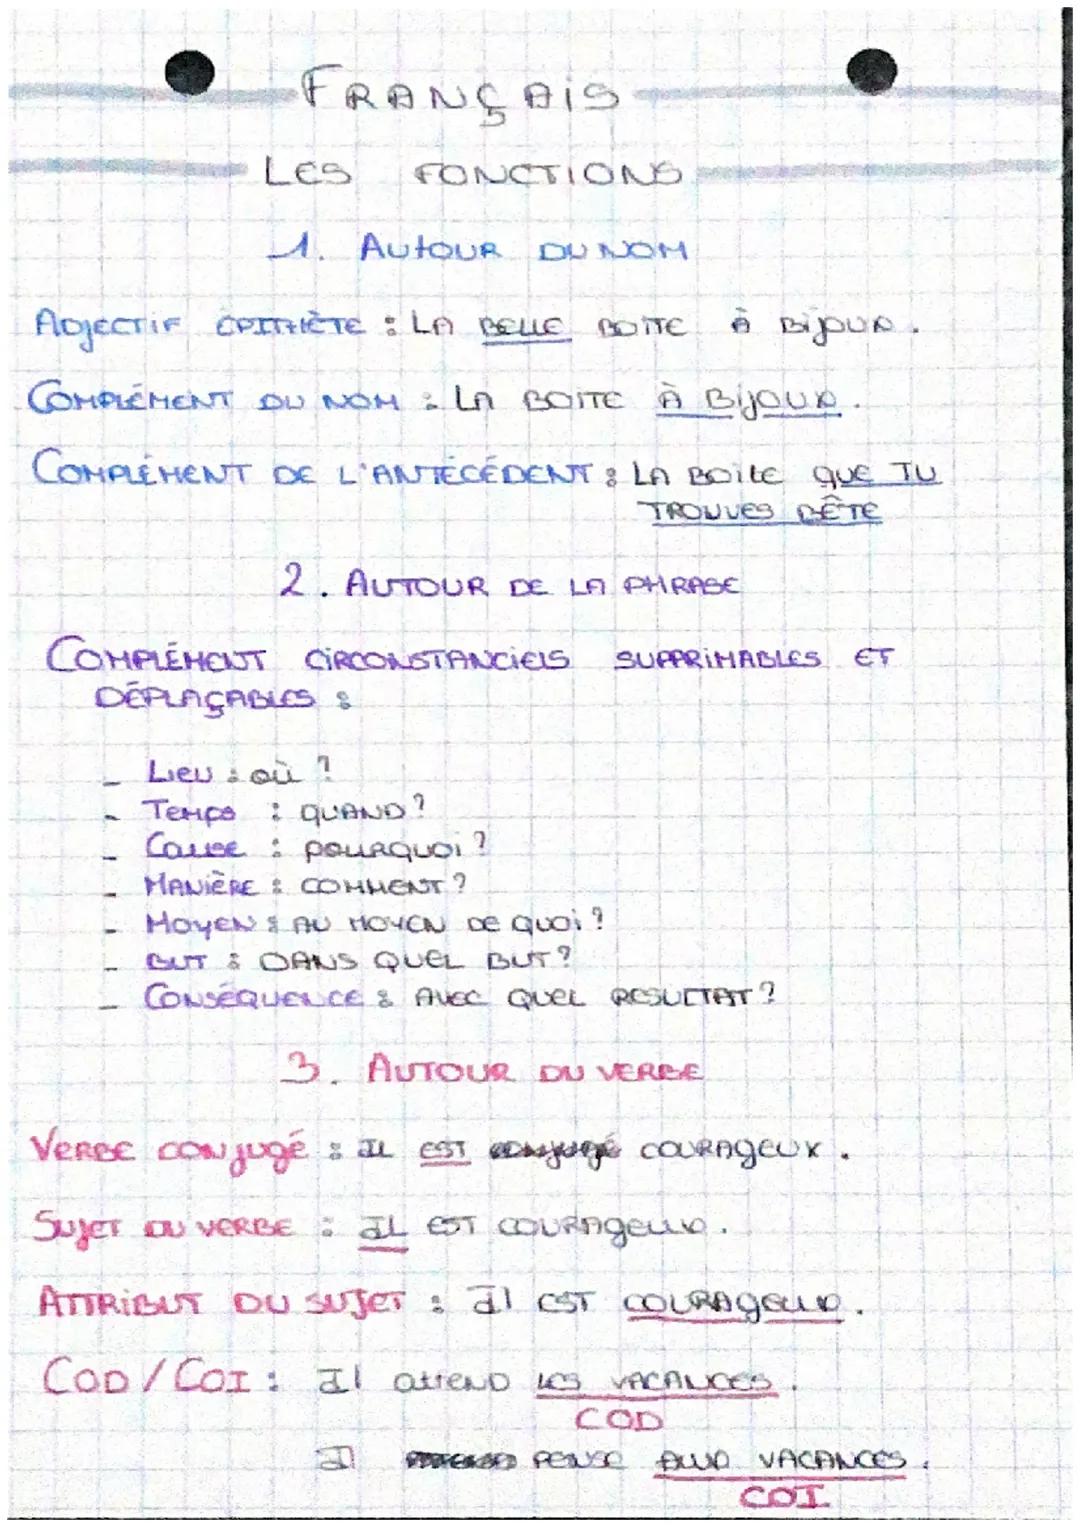 FRANÇAIS
LES FONCTIONS
1. AUTOUR DU NOM
ADJECTIF ÉPITHÈTE : LA BELLE BOITE À BIJOUX.
COMPLÉMENT DU NOM : LA BOITE À BIJOUX.
COMPLÉMENT DE L'ANTÉCÉDENT : LA BOITE QUE TU
TROUVES BÊTE
2. AUTOUR DE LA PHRASE
COMPLÉMENT CIRCONSTANCIELS SUPPRIMABLES ET
DÉPLAÇABLES :
- LIEU : OÙ ?
- TEMPS : QUAND ?
- CAUSE : POURQUOI ?
- MANIÈRE : COMMENT ?
- MOYEN : AU MOYEN DE QUOI ?
- BUT : DANS QUEL BUT ?
- CONSÉQUENCE : AVEC QUEL RESULTAT ?
3. AUTOUR DU VERBE
VERBE CONJUGÉ : IL EST COURAGEUX.
SUJET DU VERBE : IL EST COURAGEUX.
ATTRIBUT DU SUJET : Il EST COURAGEUX.
COD / COI : Il ATTEND LES VACANCES.
COD
Il PENSE AUX VACANCES.
COI